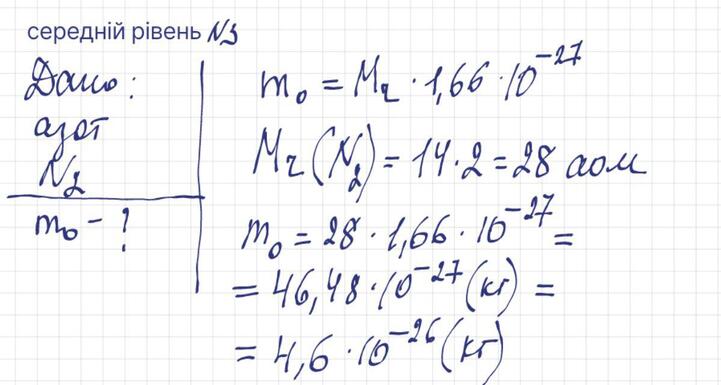 середній рівень №3
Дано:
азот
N₂
m₀ - ?
m₀ = Mr · 1,66 · 10⁻²⁷
Mr(N₂) = 14 · 2 = 28 аом
m₀ = 28 · 1,66 · 10⁻²⁷ =
= 46,48 · 10⁻²⁷ (кг) =
= 4,6 · 10⁻²⁶ (кг)